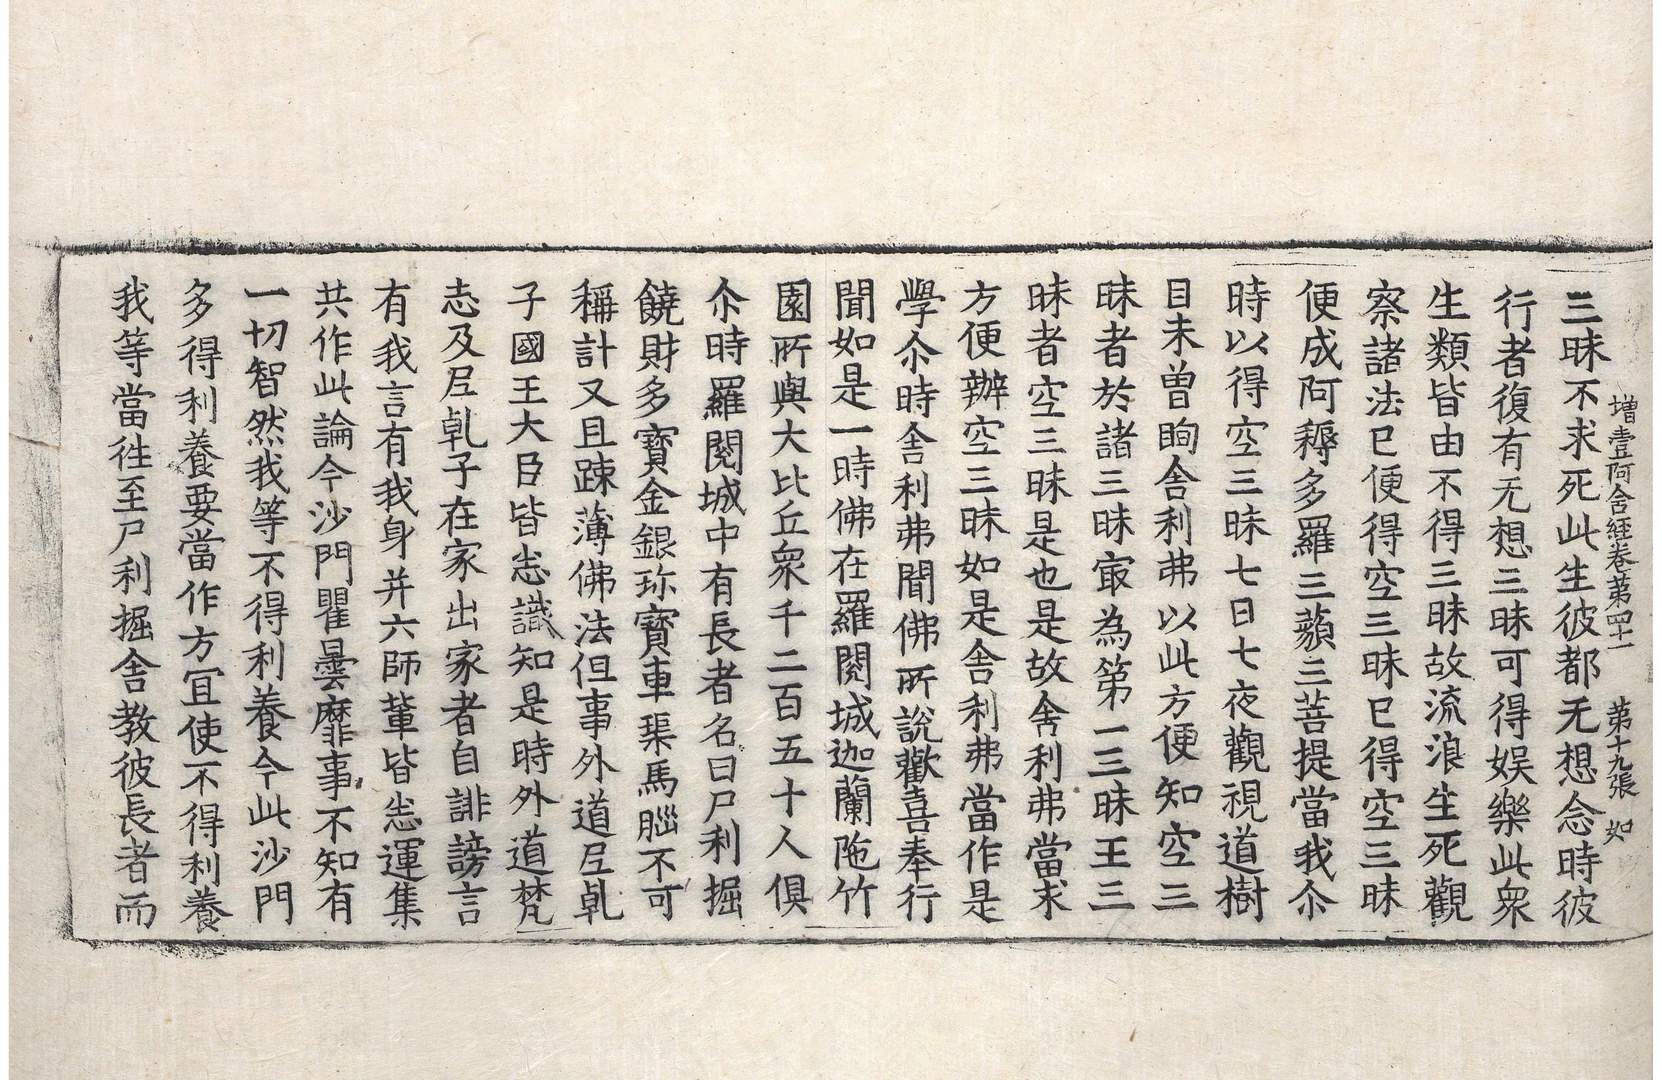 增壹阿含經卷第四十一 第十九張 如
三昧不求死此生彼都无想念時彼
行者復有无想三昧可得娛樂此衆
生類皆由不得三昧故流浪生死觀
察諸法已便得空三昧已得空三昧
便成阿耨多羅三藐三菩提當我尒
時以得空三昧七日七夜觀視道樹
目未曾眴舍利弗以此方便知空三
昧者於諸三昧㝡為第一三昧王三
昧者空三昧是也是故舍利弗當求
方便辦空三昧如是舍利弗當作是
學尒時舍利弗聞佛所說歡喜奉行
聞如是一時佛在羅閱城迦蘭陁竹
園所與大比丘衆千二百五十人俱
尒時羅閱城中有長者名曰尸利掘
饒財多寶金銀珎寶車璖馬腦不可
稱計又且踈薄佛法但事外道尼乹
子國王大臣皆悉識知是時外道梵
志及尼乹子在家出家者自誹謗言
有我言有我身并六師輩皆悉運集
共作此論今沙門瞿曇靡事不知有
一切智然我等不得利養今此沙門
多得利養要當作方冝使不得利養
我等當往至尸利掘舍教彼長者而